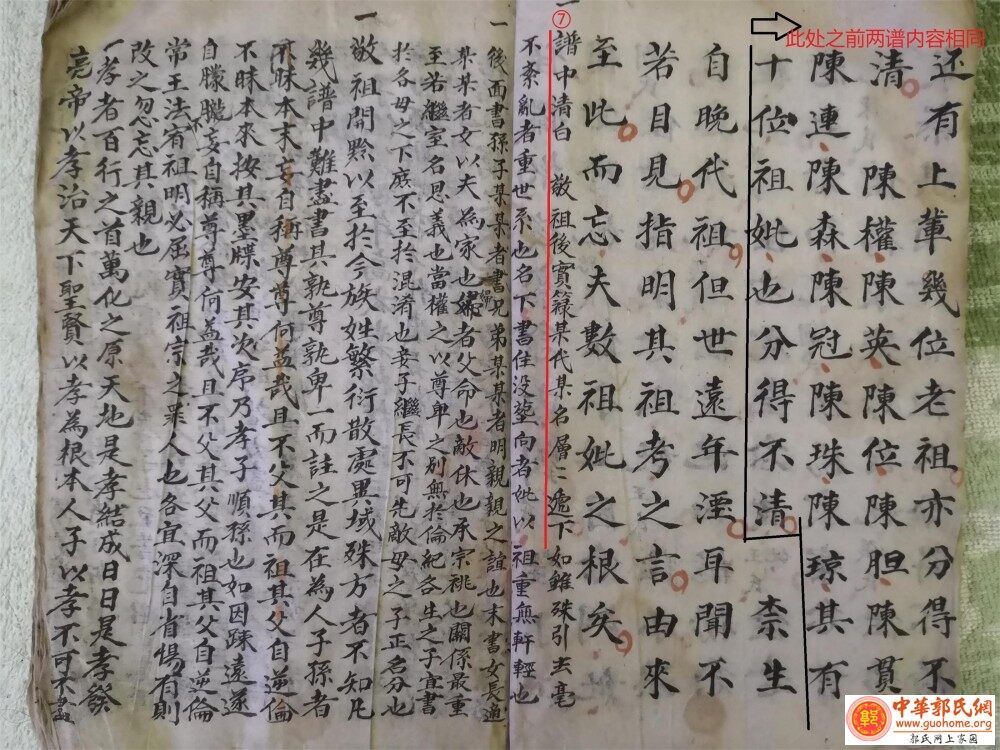 此处之前两谱内容相同
还有上輩幾位老祖亦分得不
清 陳權陳英陳位陳胆陳貫
陳連陳森陳冠陳珠陳琼其有
十位祖妣也分得不清 柰生
自晚代祖但世遠年湮耳聞不
若目見指明其祖考之言由來
至此而忘夫數祖妣之根矣
⑦
一譜中清白 敬祖後實錄某代某名層二遞下如雖殊引去毫
不紊亂者重世系也名下書佳没塋向者妣以祖重無軒輕也
一後面書孫子某某者書兄弟某某者明親親之誼也末書女長適
某某者女以夫為家也 者父命也敵休也承宗祧也關係最重
至若繼室名思義也當權之以尊卑之别無於倫紀各生之子宜書
於各母之下庶不至於混淆也妾子繼長不可先敵母之子正名分也
一敬祖開黔以至於今族姓繁衍散處異域殊方者不知凡
幾譜中難盡書其孰尊孰卑一而註之是在為人子孫者
不昧本末妄自稱尊尊何益哉且不父其而祖其父自逆倫
不昧本來按其墨牒安其次序乃孝子順孫也如因踈遠遂
自朦朧妄自稱尊尊何益哉且不父其父而祖其父自逆倫
常王法宥祖明必屈實祖宗之罪人也各宜深自省惕有則
改之勿忘其親也
一孝者百行之首萬化之原天地是孝結成日日是孝發
亮帝以孝治天下聖賢以孝為根本人子以孝不可不盡
中華郭氏網
www.guohome.org
郭氏网上家园